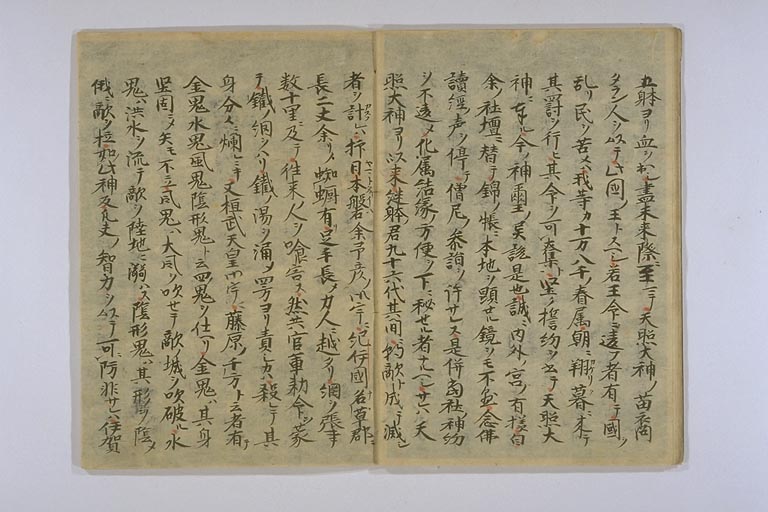 五躰ヨリ血ヲ出シ盡未来際ニ至ニテ天照大神ノ苗裔
タラン人ヲ以テ此國ノ王トスヘシ若王命ニ違フ者有テ國ヲ
乱リ民ヲ苦メハ我等カ十万八千ノ眷属朝ニ翔暮ニ来テ
其罰ヲ行ヒ其命ヲ可奪ト堅ク誓約ヲ出テ天照大
神ニ奉ル今ノ神璽ノ異説是也誠ニ内外ノ宮ノ有様自
余ノ社壇ニ替テ錦ノ帳ニ本地ヲ顕セル鏡ヲモ不並念佛
讀經ノ声ヲ停テ僧尼ノ参詣ヲ許サレス是併當社ノ神約
ヲ不違メ化属結縁ノ方便ノ下ニ秘セル者ナルヘシサレハ天
照大神ヨリ以来継躰君九十六代其間ニ朝敵ト成テ滅シ
者ヲ計レハ神日本磐余予彦ノ御宇ニ紀伊國名草郡ニ
長二丈余ノ蜘蛛有足手長ノ力人ニ越タリ網ヲ張事
数十里ニ及テ往来ノ人ヲ喰害ス然共官軍勅令ヲ蒙
テ鐵ノ網ヲハリ鐵ノ湯ヲ涌メ四方ヨリ責シカハ殺レテ其
身分々ニ爛ニキ又桓武天皇御宇ニ藤原ノ千方ト云者有テ
金鬼水鬼風鬼隠形鬼ト云四鬼ヲ仕リ金鬼ハ其身
堅固ニメ矢モ不立風鬼ハ大風ヲ吹セテ敵城ヲ吹破ル水
鬼ハ洪水ヲ流テ敵ヲ陸地ニ溺ハス隠形鬼ハ其形ヲ隠メ
俄ニ敵ヲ拉如此神反凡夫ノ智力ヲ以テ可防非サレハ伊賀